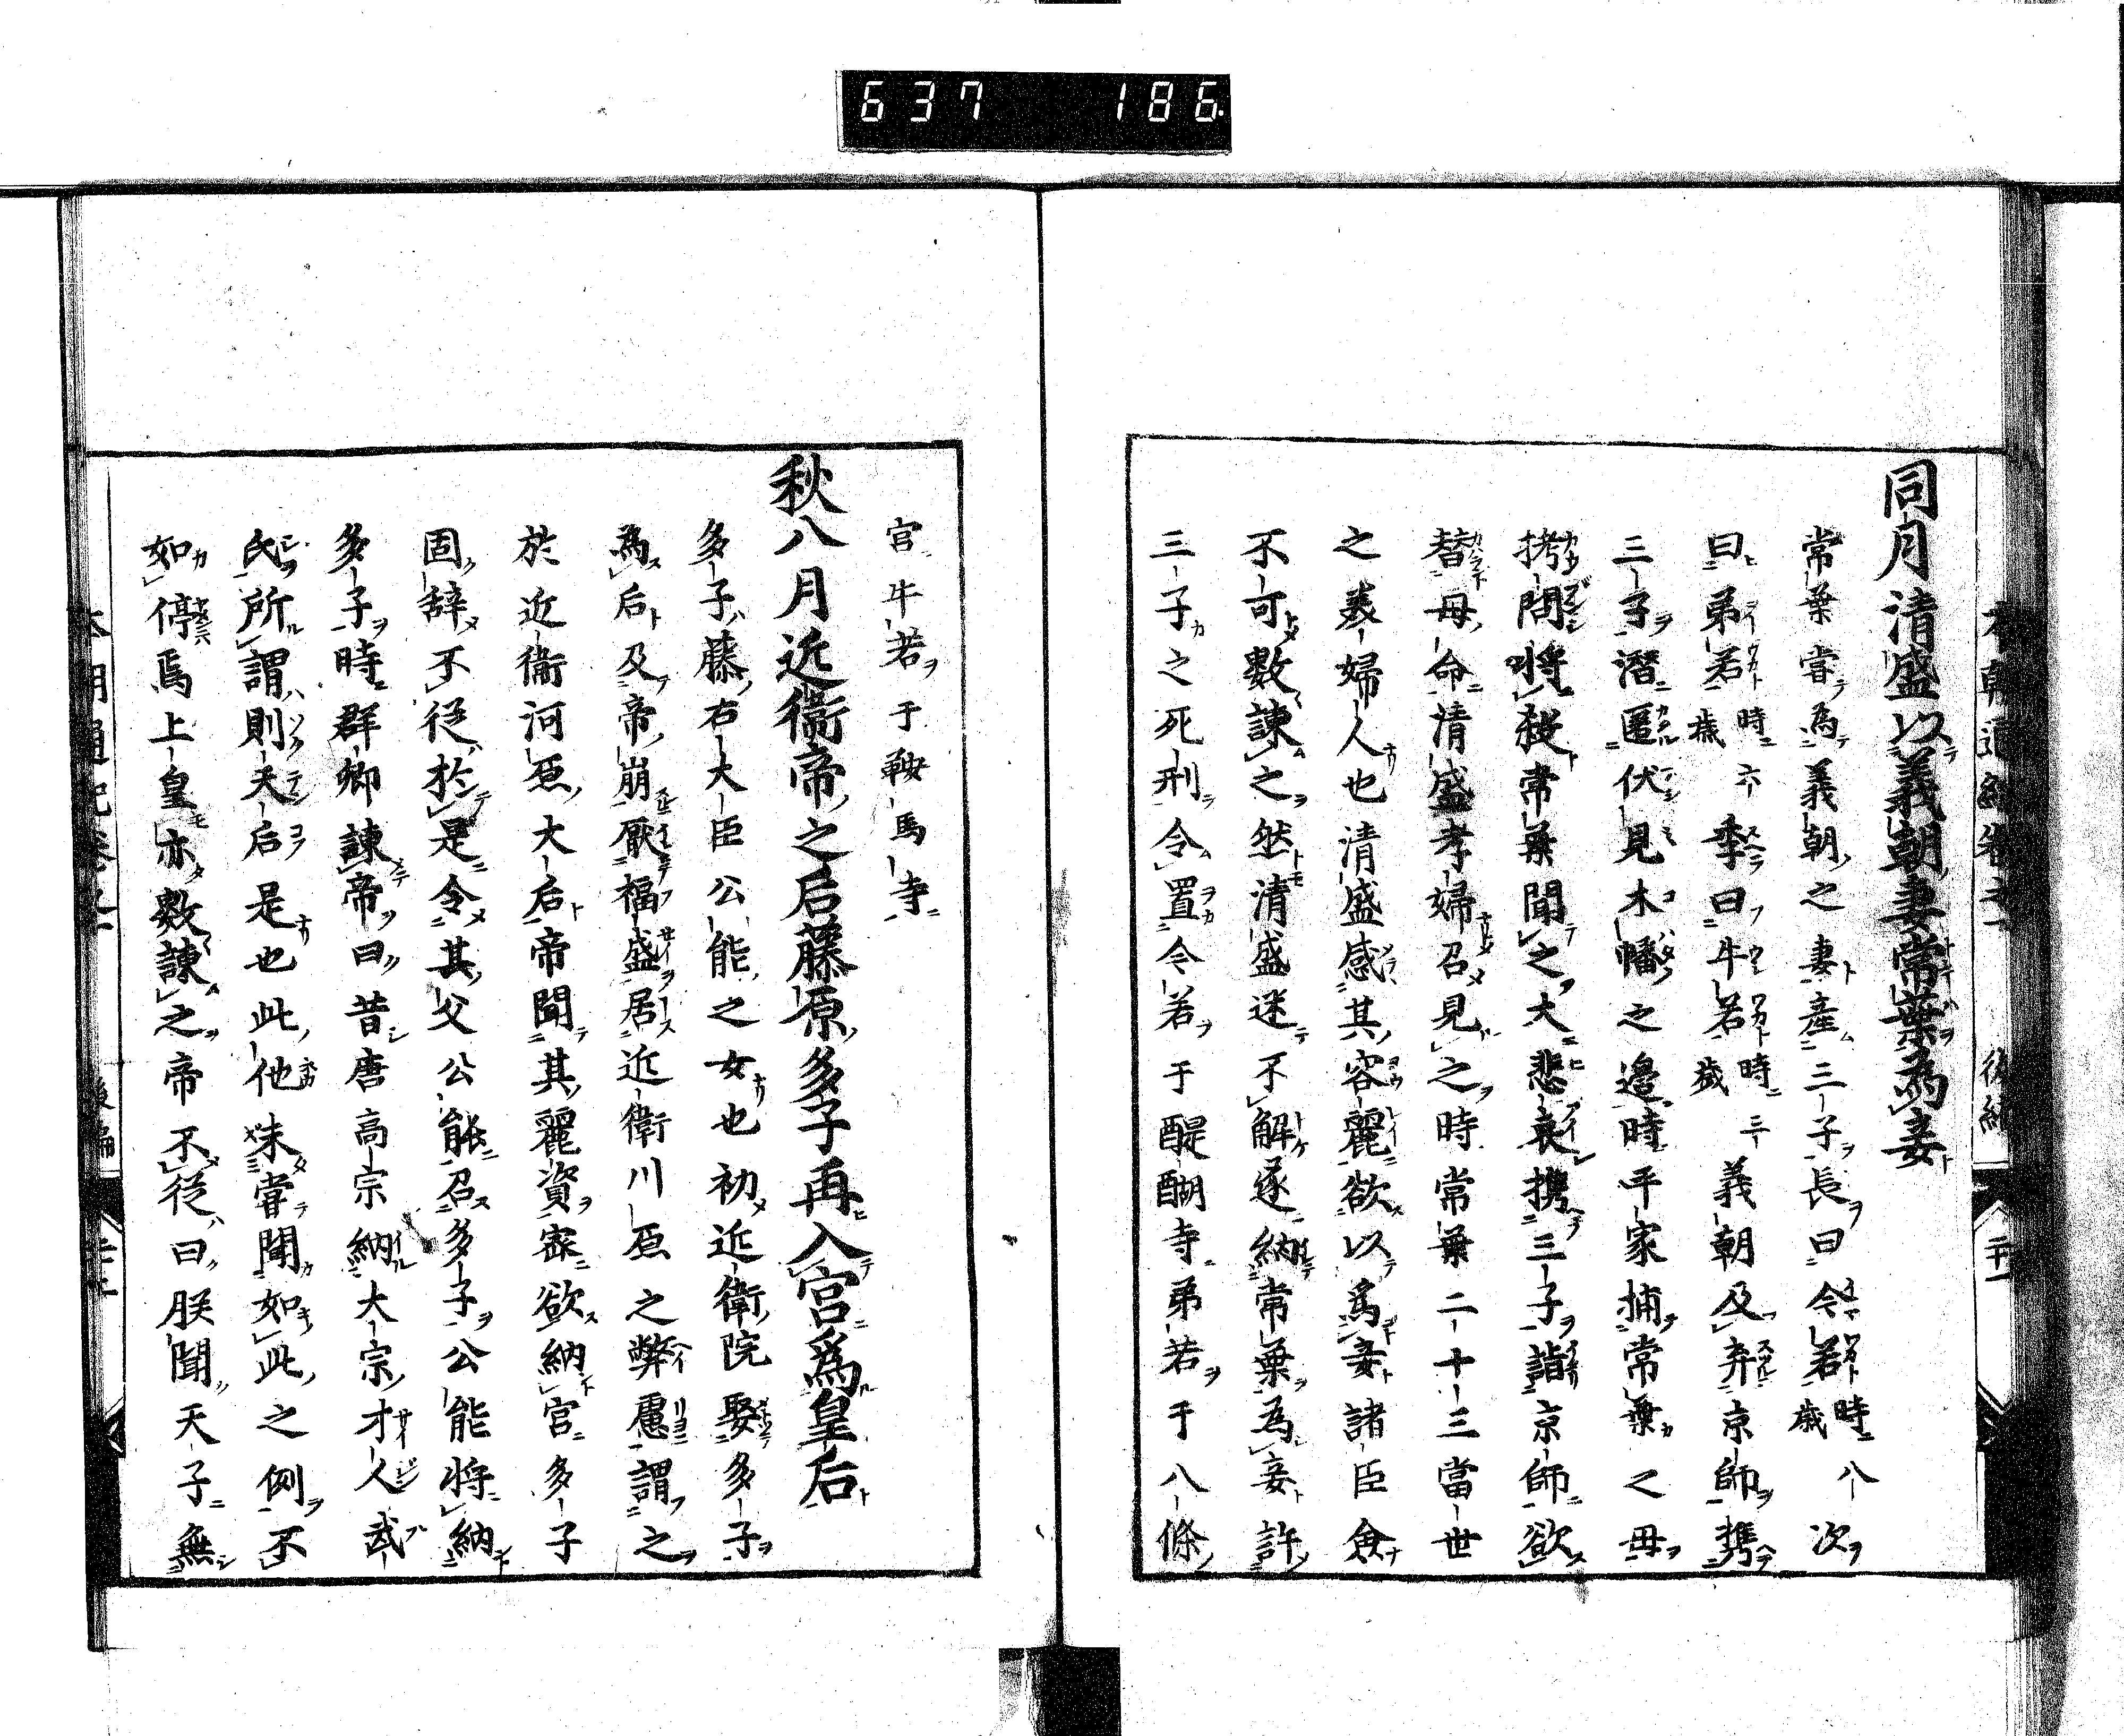 637 186
同月清盛以義朝妻常葉為妾
常葉嘗為義朝之妻產三子長曰今若時八歲次
曰弟若時六歲季曰牛若時三歲義朝及弃京師攜
三子潛匿伏見木幡之邊時平家捕常葉之母
拷問將殺常葉聞之大悲哀携三子詣京師欲
替母命清盛孝婦召見之時常葉二十三當世
之美婦人也清盛感其容麗欲以爲妾諸臣僉
不可數諫之然清盛迷不解遂納常葉為妾許
三子之死刑令置今若于醍醐寺弟若于八條
宮牛若于鞍馬寺
秋八月近衞帝之后藤原多子再入宮爲皇后
多子藤右大臣公能之女也初近衛院娶多子
為后及帝崩厭福盛居近衛川原之弊廬謂之
於近衞河原大后帝聞其麗資密欲納宮多子
固辞不従於是令其父公能召多子公能将納
多子時群卿諫帝曰昔唐高宗納太宗才人武
氏所謂則天后是也此他未嘗聞如此之例不
如停焉上皇亦数諫之帝不従曰朕聞天子無